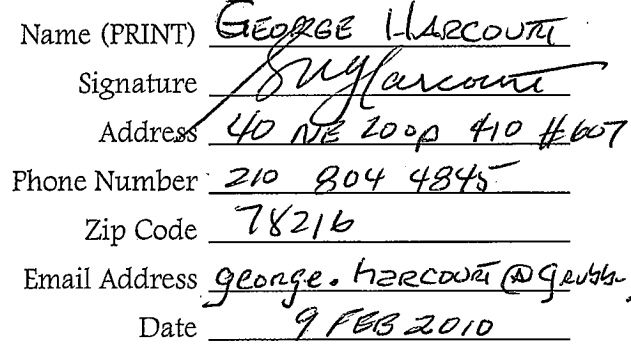 Name (PRINT) GEORGE HARCOURT
Signature Harcourt
Address 40 NE Loop 410 #607
Phone Number 210 804 4845
Zip Code 78216
Email Address george.harcourt@grubb-
Date 9 FEB 2010